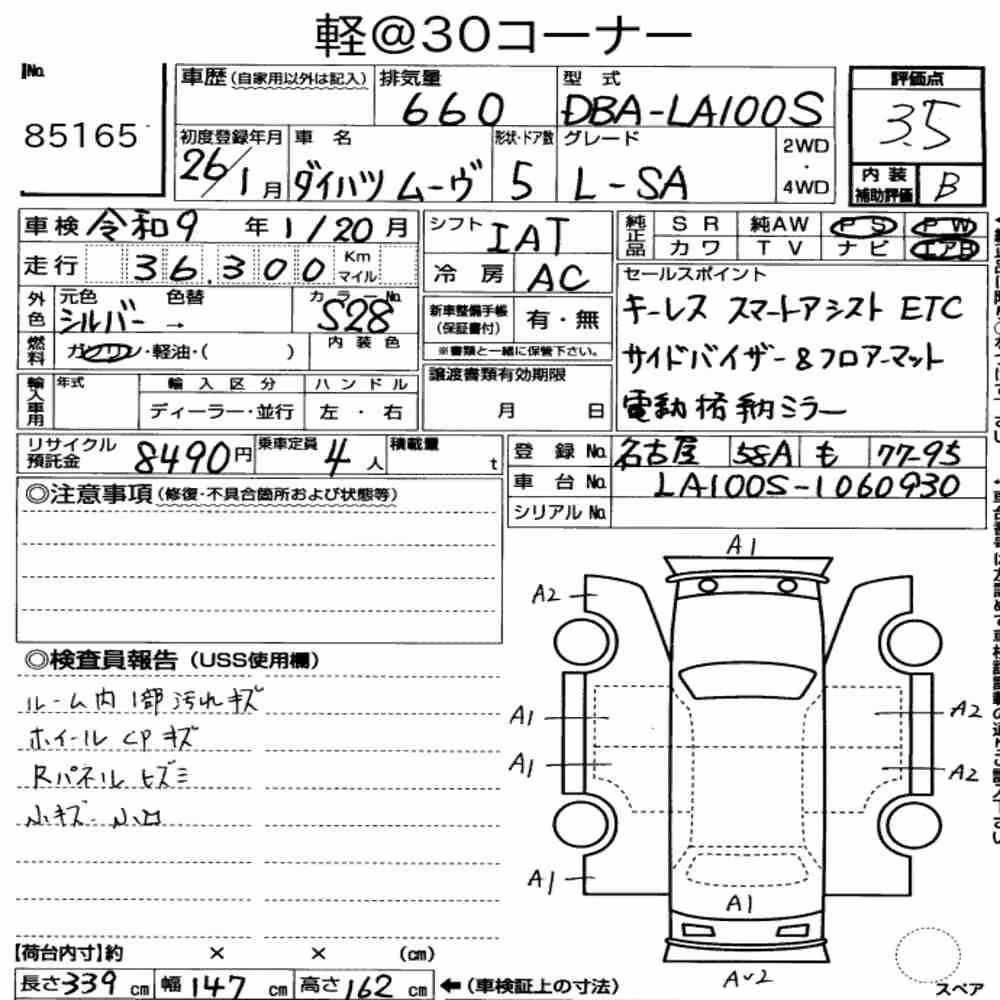 軽@30コーナー
No.
85165
車歴(自家用以外は記入)
排気量
660
型 式
DBA-LA100S
評価点
3.5
初度登録年月
26/1月
車 名
ダイハツ ムーヴ
形状・ドア数
5
グレード
L-SA
2WD
・
4WD
内 装
補助評価
B
車検 令和9年1/20月
シフト IAT
純正品
SR 純AW PS PW
カワ TV ナビ エアB
走行 36,300 Km マイル
冷 房 AC
セールスポイント
キーレス スマートアシスト ETC
サイドバイザー&フロアーマット
電動格納ミラー
外色
元色 色替
シルバー →
カラーNo.
S28
新車整備手帳
(保証書付)
有・無
※書類と一緒に保管下さい。
燃料
ガソリン・軽油・( )
内 装 色
輸入車用
年式
輸 入 区 分
ディーラー・並行
ハ ン ド ル
左 ・ 右
譲渡書類有効期限
月 日
リサイクル
預託金
8490円
乗車定員
4人
積載量
t
登 録 No. 名古屋 58A も 77-95
車 台 No. LA100S-1060930
シリアル No.
◎注意事項(修復・不具合箇所および状態等)
◎検査員報告(USS使用欄)
ルーム内 1部 汚れ キズ
ホイール CP キズ
Rパネル ヒズミ
小キズ 小凹
A1
A2
A1
A2
A1
A2
A1
A1
A~2
【荷台内寸】約 × × (cm)
長さ339cm 幅147cm 高さ162cm ←(車検証上の寸法)
スペア